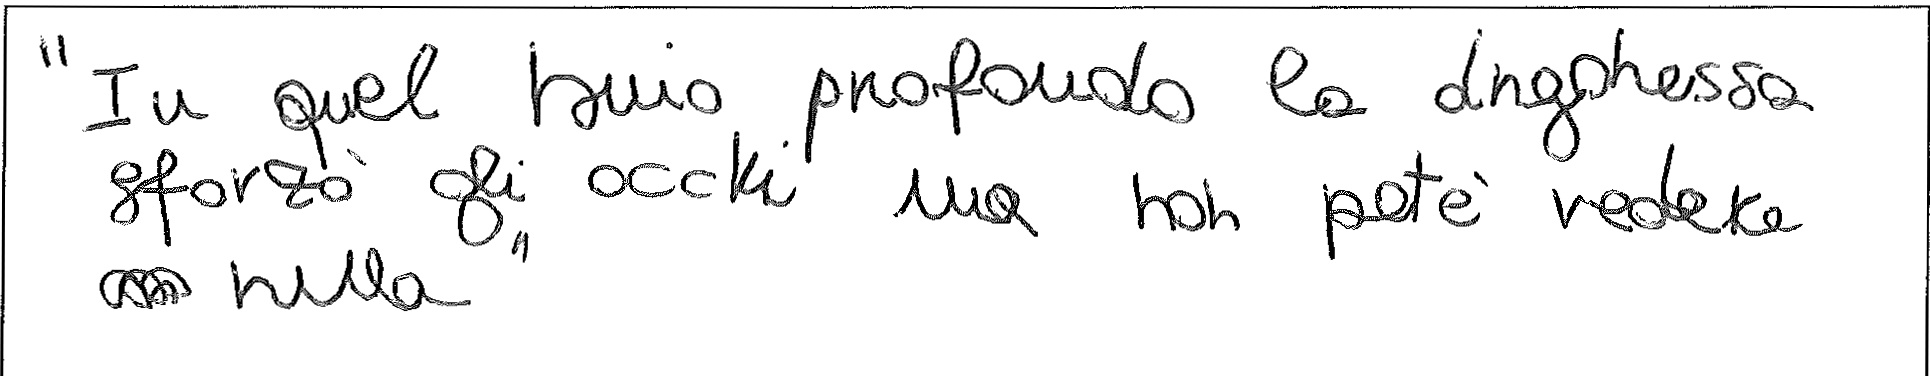 "In quel buio profondo la draghessa
sforzò gli occhi ma non poté vedere
nulla"